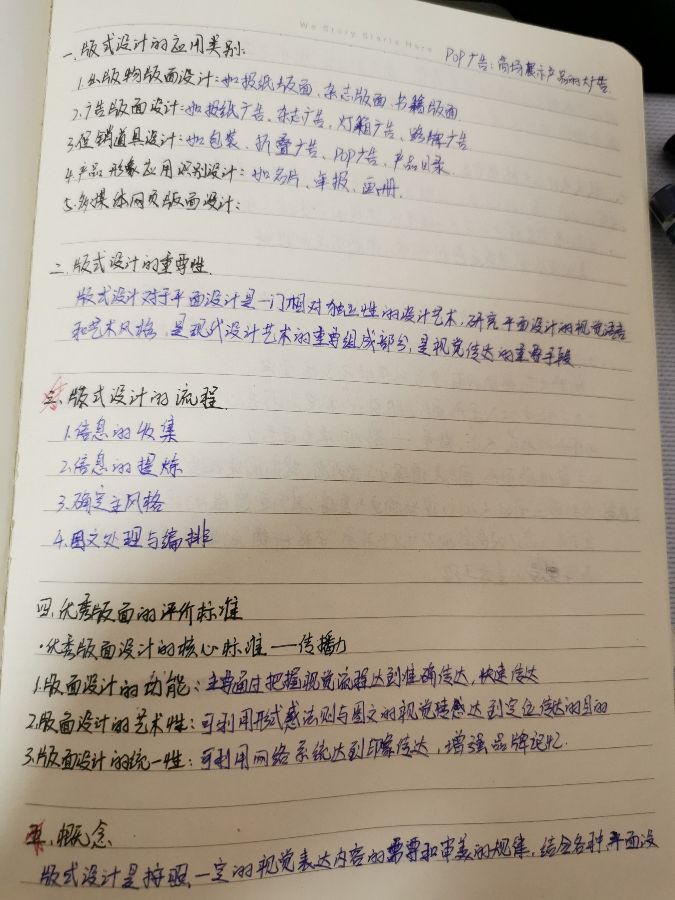 We Story Starts Here
Pop广告：商场展示产品的大广告
一、版式设计的应用类别：
1.出版物版面设计：如报纸版面、杂志版面、书籍版面
2.广告版面设计：如报纸广告、杂志广告、灯箱广告、路牌广告
3.促销道具设计：如包装、折叠广告、Pop广告、产品目录
4.产品形象应用识别设计：如名片、年报、画册.
5.多媒体网页版面设计：
二、版式设计的重要性.
版式设计对于平面设计是一门相对独立性的设计艺术，研究平面设计的视觉语言
和艺术风格，是现代设计艺术的重要组成部分，是视觉传达的重要手段
三、版式设计的流程.
1.信息的收集
2.信息的提炼
3.确定主风格
4.图文处理与编排
四、优秀版面的评价标准
·优秀版面设计的核心标准——传播力
1.版面设计的功能：主要通过把握视觉流程达到准确信达，快速信达
2.版面设计的艺术性：可利用形式感法则与图文的视觉情感达到定位信达的目的
3.版面设计的统一性：可利用网络系统达到印象信达，增强品牌记忆.
五、概念
版式设计是按照一定的视觉表达内容的需要和审美的规律，结合各种平面设